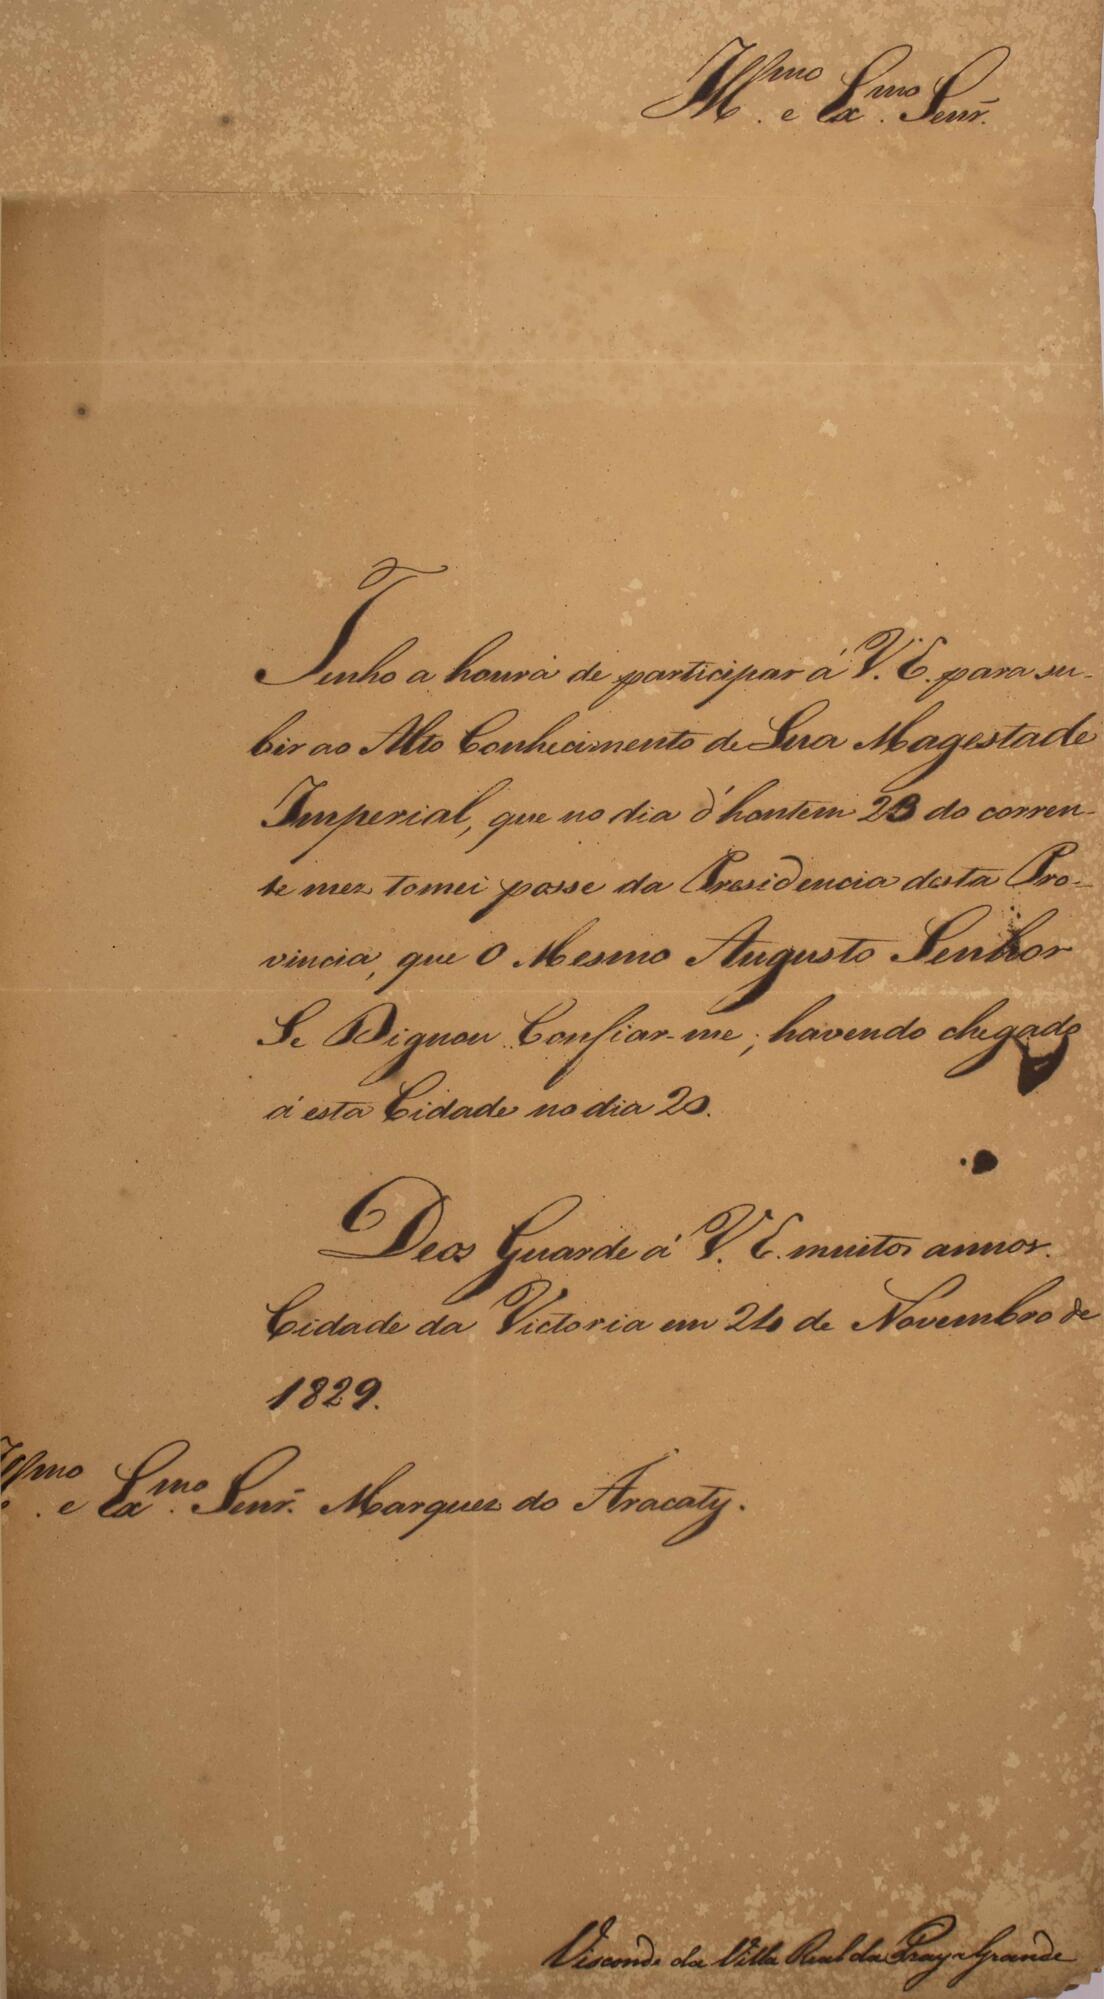 Illmo. e Exmo. Senr.
Tenho a honra de participar á V. E. para su-
bir ao Alto Conhecimento de Sua Magestade
Imperial, que no dia d'hontem 23 do corren-
te mez tomei posse da Presidencia desta Pro-
vincia, que O Mesmo Augusto Senhor
Se Dignou Confiar-me; havendo chegado
á esta Cidade no dia 20.
Deos Guarde á V. E. muitos annos.
Cidade da Victoria em 24 de Novembro de
1829.
Illmo. e Exmo. Senr. Marquez do Aracaty.
Visconde da Villa Real da Praya Grande